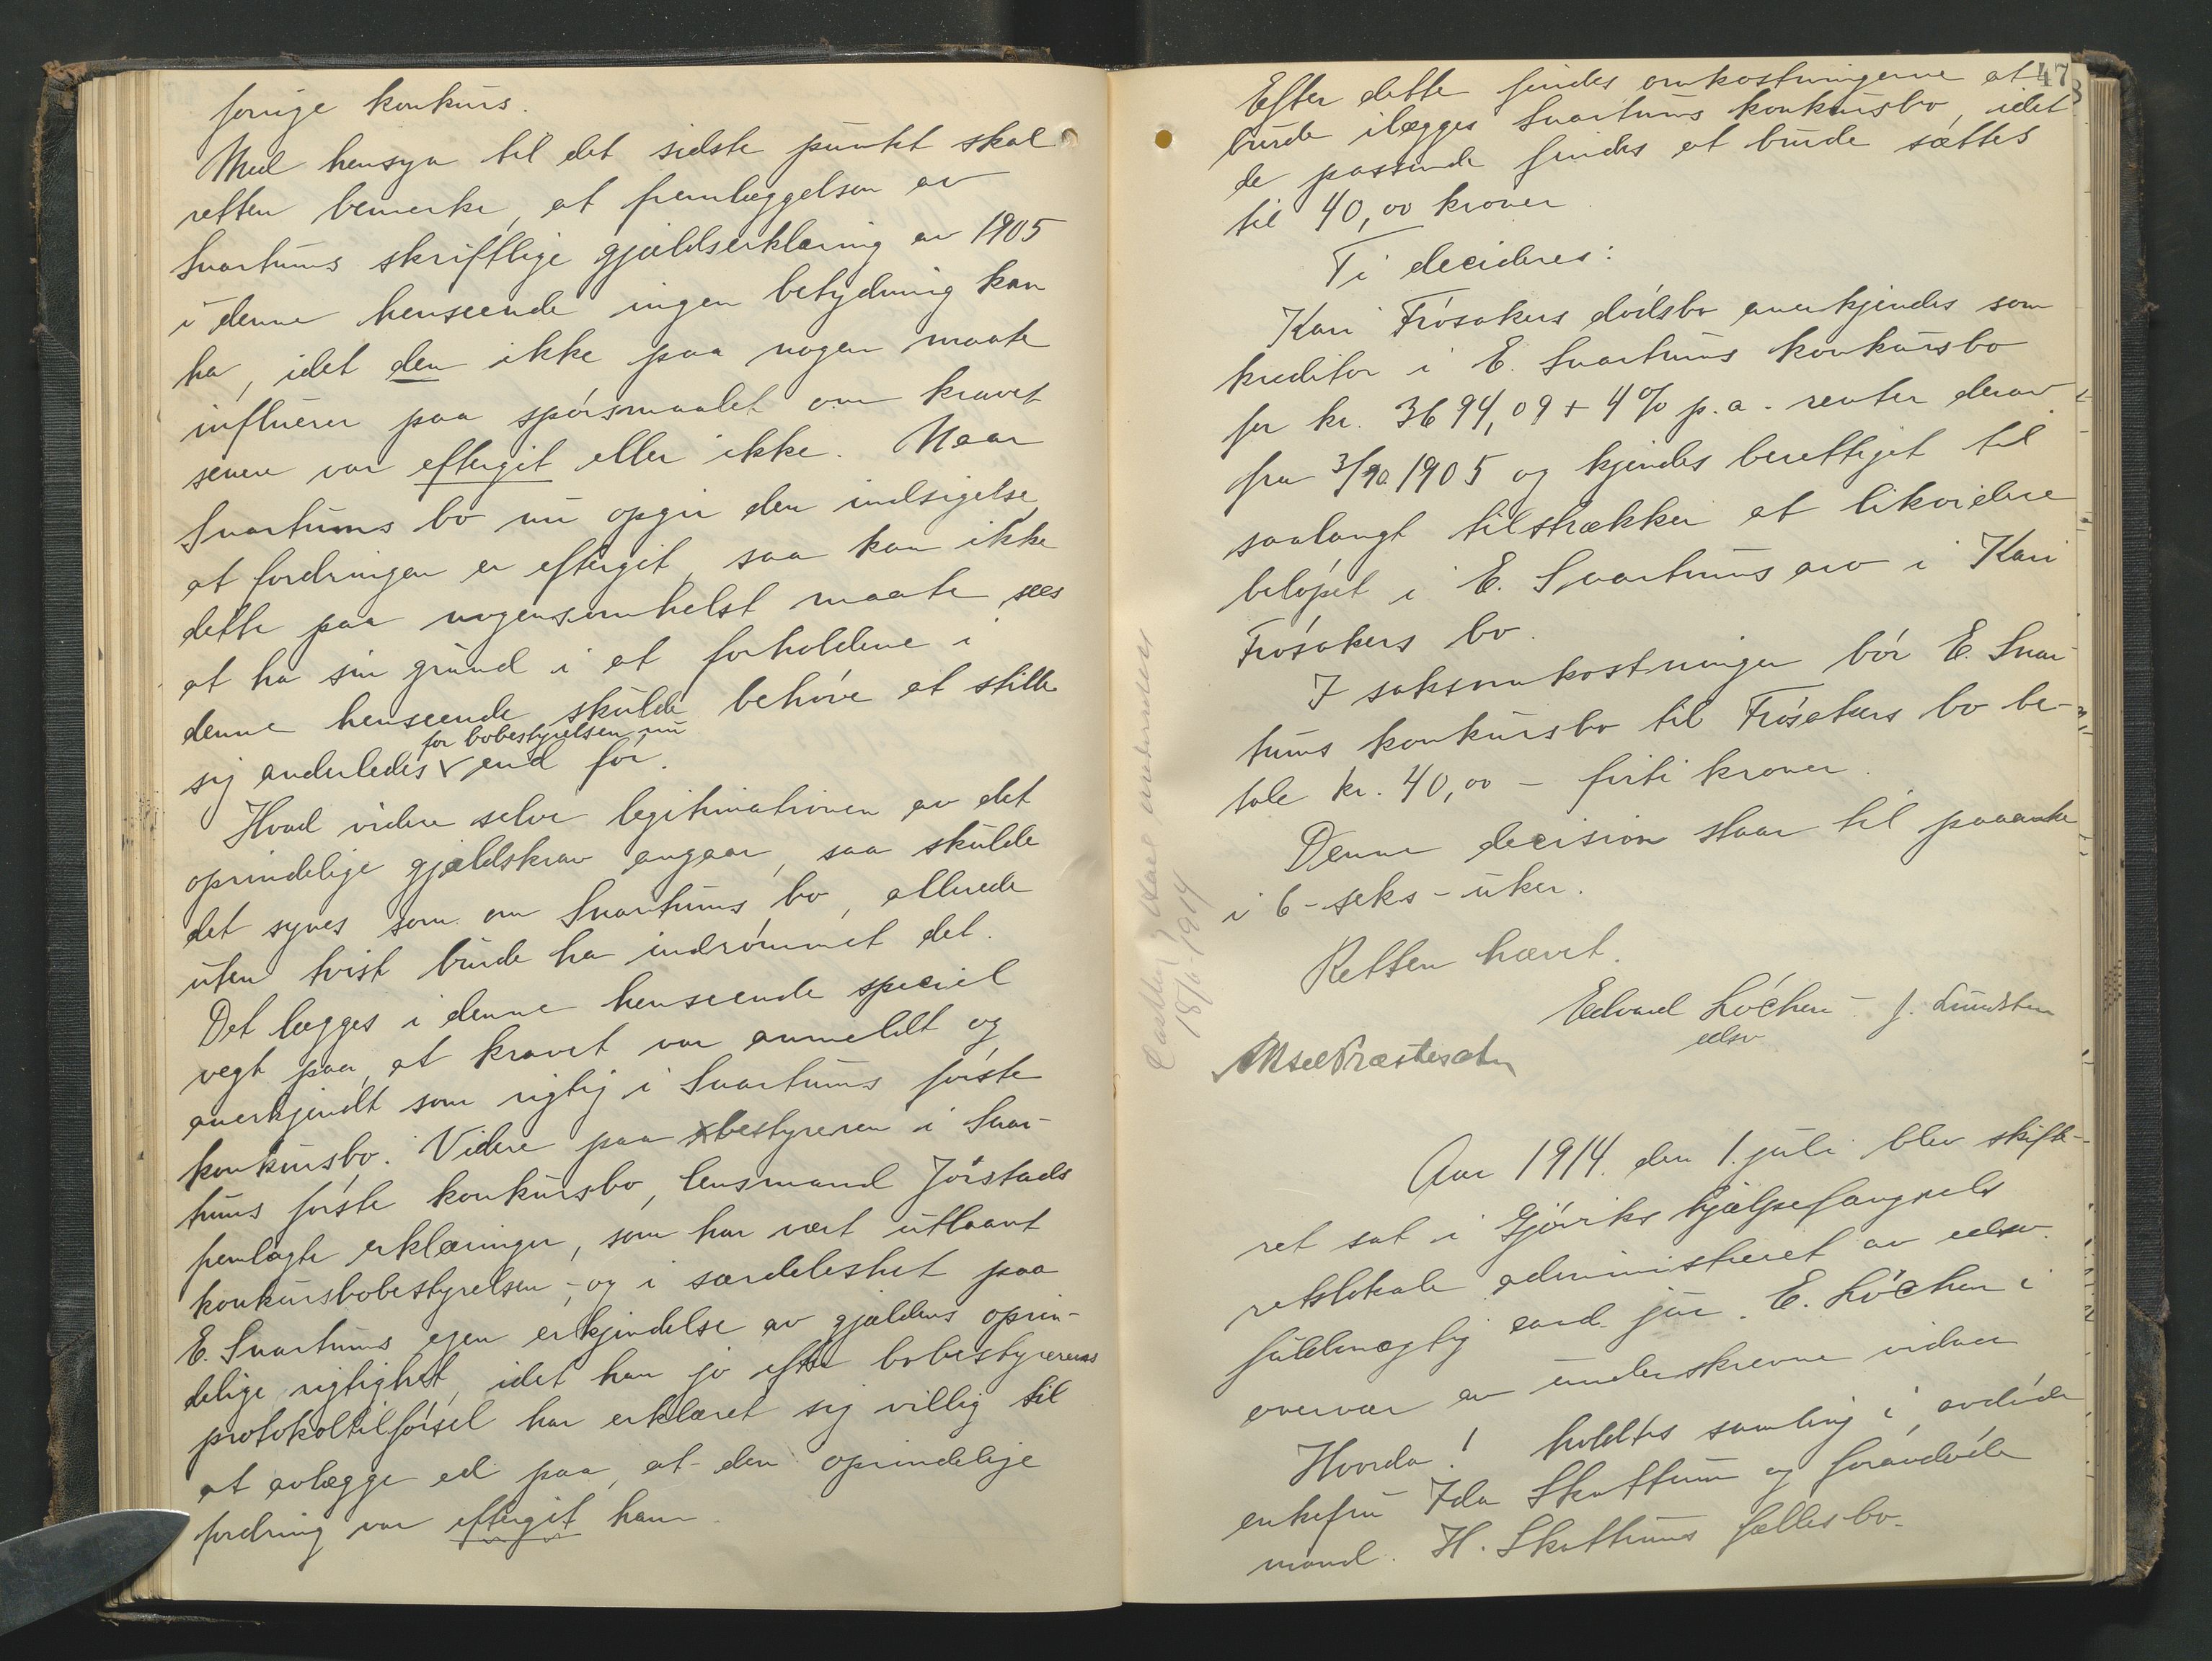 forrige konkurs.
Med hensyn til det sidste punkt skal
retten bemerke, at fremlæggelsen av
Svartums skriftlige gjældserklæring av 1905
i denne henseende ingen betydning kan
ha, idet den ikke paa nogen maate
influerer paa spørsmaalet om kravet
senere var eftergit eller ikke. Naar
Svartums bo nu opgir den indsigelse
at fordringen er eftergit, saa kan ikke
dette paa nogensomhelst maate sees
at ha sin grund i at forholdene i
denne henseende skulde behøve at stille
sig anderledes for bobestyrelsen nu end før.
Hvad videre selve legitimationen av det
oprindelige gjældskrav angaar, saa skulde
det synes som om Svartums bo, allerede
uten tvist burde ha indrømmet det.
Det lægges i denne henseende speciel
vegt paa, at kravet var anmeldt og
anerkjendt som rigtig i Svartums første
konkursbo. Videre paa bestyreren i Svar-
tums første konkursbo, lensmand Jørstads
fremlagte erklæringer, som har vært utlaant
konkursbobestyrelsen, - og i særdeleshet paa
E. Svartums egen erkjendelse av gjældens oprin-
delige rigtighet, idet han jo efter bobestyrerens
protokoltilførsel har erklæret sig villig til
at avlægge ed paa, at den oprindelige
fordring var eftergit ham.
47
Efter dette findes omkostningerne at
burde ilægges Svartums konkursbo, idet
de passende findes at burde sættes
til 40,00 kroner.
Ti decideres:
Kari Frøsakers dødsbo anerkjendes som
kreditor i E. Svartums konkursbo
for kr. 3694,09 + 4% p.a. renter derav
fra 3/10 1905 og kjendes berettiget til
saalangt tilstrækker at likvidere
beløpet i E. Svartums arv i Kari
Frøsakers bo.
I saksomkostninger bør E. Svar-
tums konkursbo til Frøsakers bo be-
tale kr. 40,00 - firti kroner.
Denne decision staar til paaanke
i 6 - seks - uker.
Retten hævet.
Edvard Løchen - J. Lundsten
edsv
Aksel Præstesæter
18/6 1914
Aar 1914. den 1. juli blev skifte-
ret sat i Gjøviks hjælpefængsels
retslokale administreret av edsv.
fuldmægtig cand. jur. E. Løchen i
overvær av underskrevne vidner
Hvorda! holdtes samling i avdøde
enkefru Ida Skattum og foravdøde
mand. H. Skattums fællesbo.